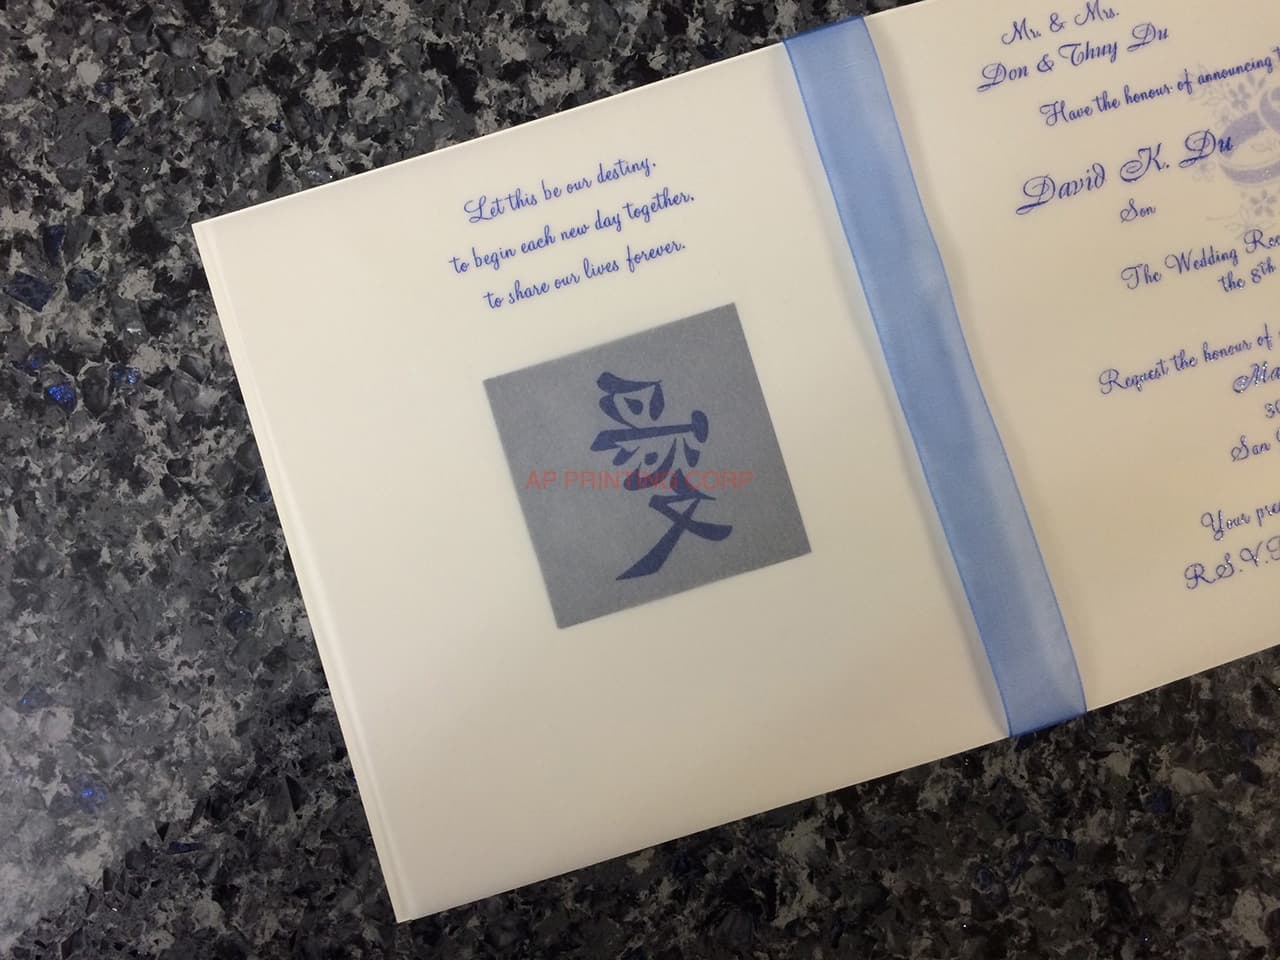 Let this be our destiny,
to begin each new day together,
to share our lives forever.
愛
AP PRINTING CORP
Mr. & Mrs.
Don & Thuy Du
Have the honour of announcing
David K. Du
Son
The Wedding
the 8th
Request the honour of
San
Your
R.S.V.